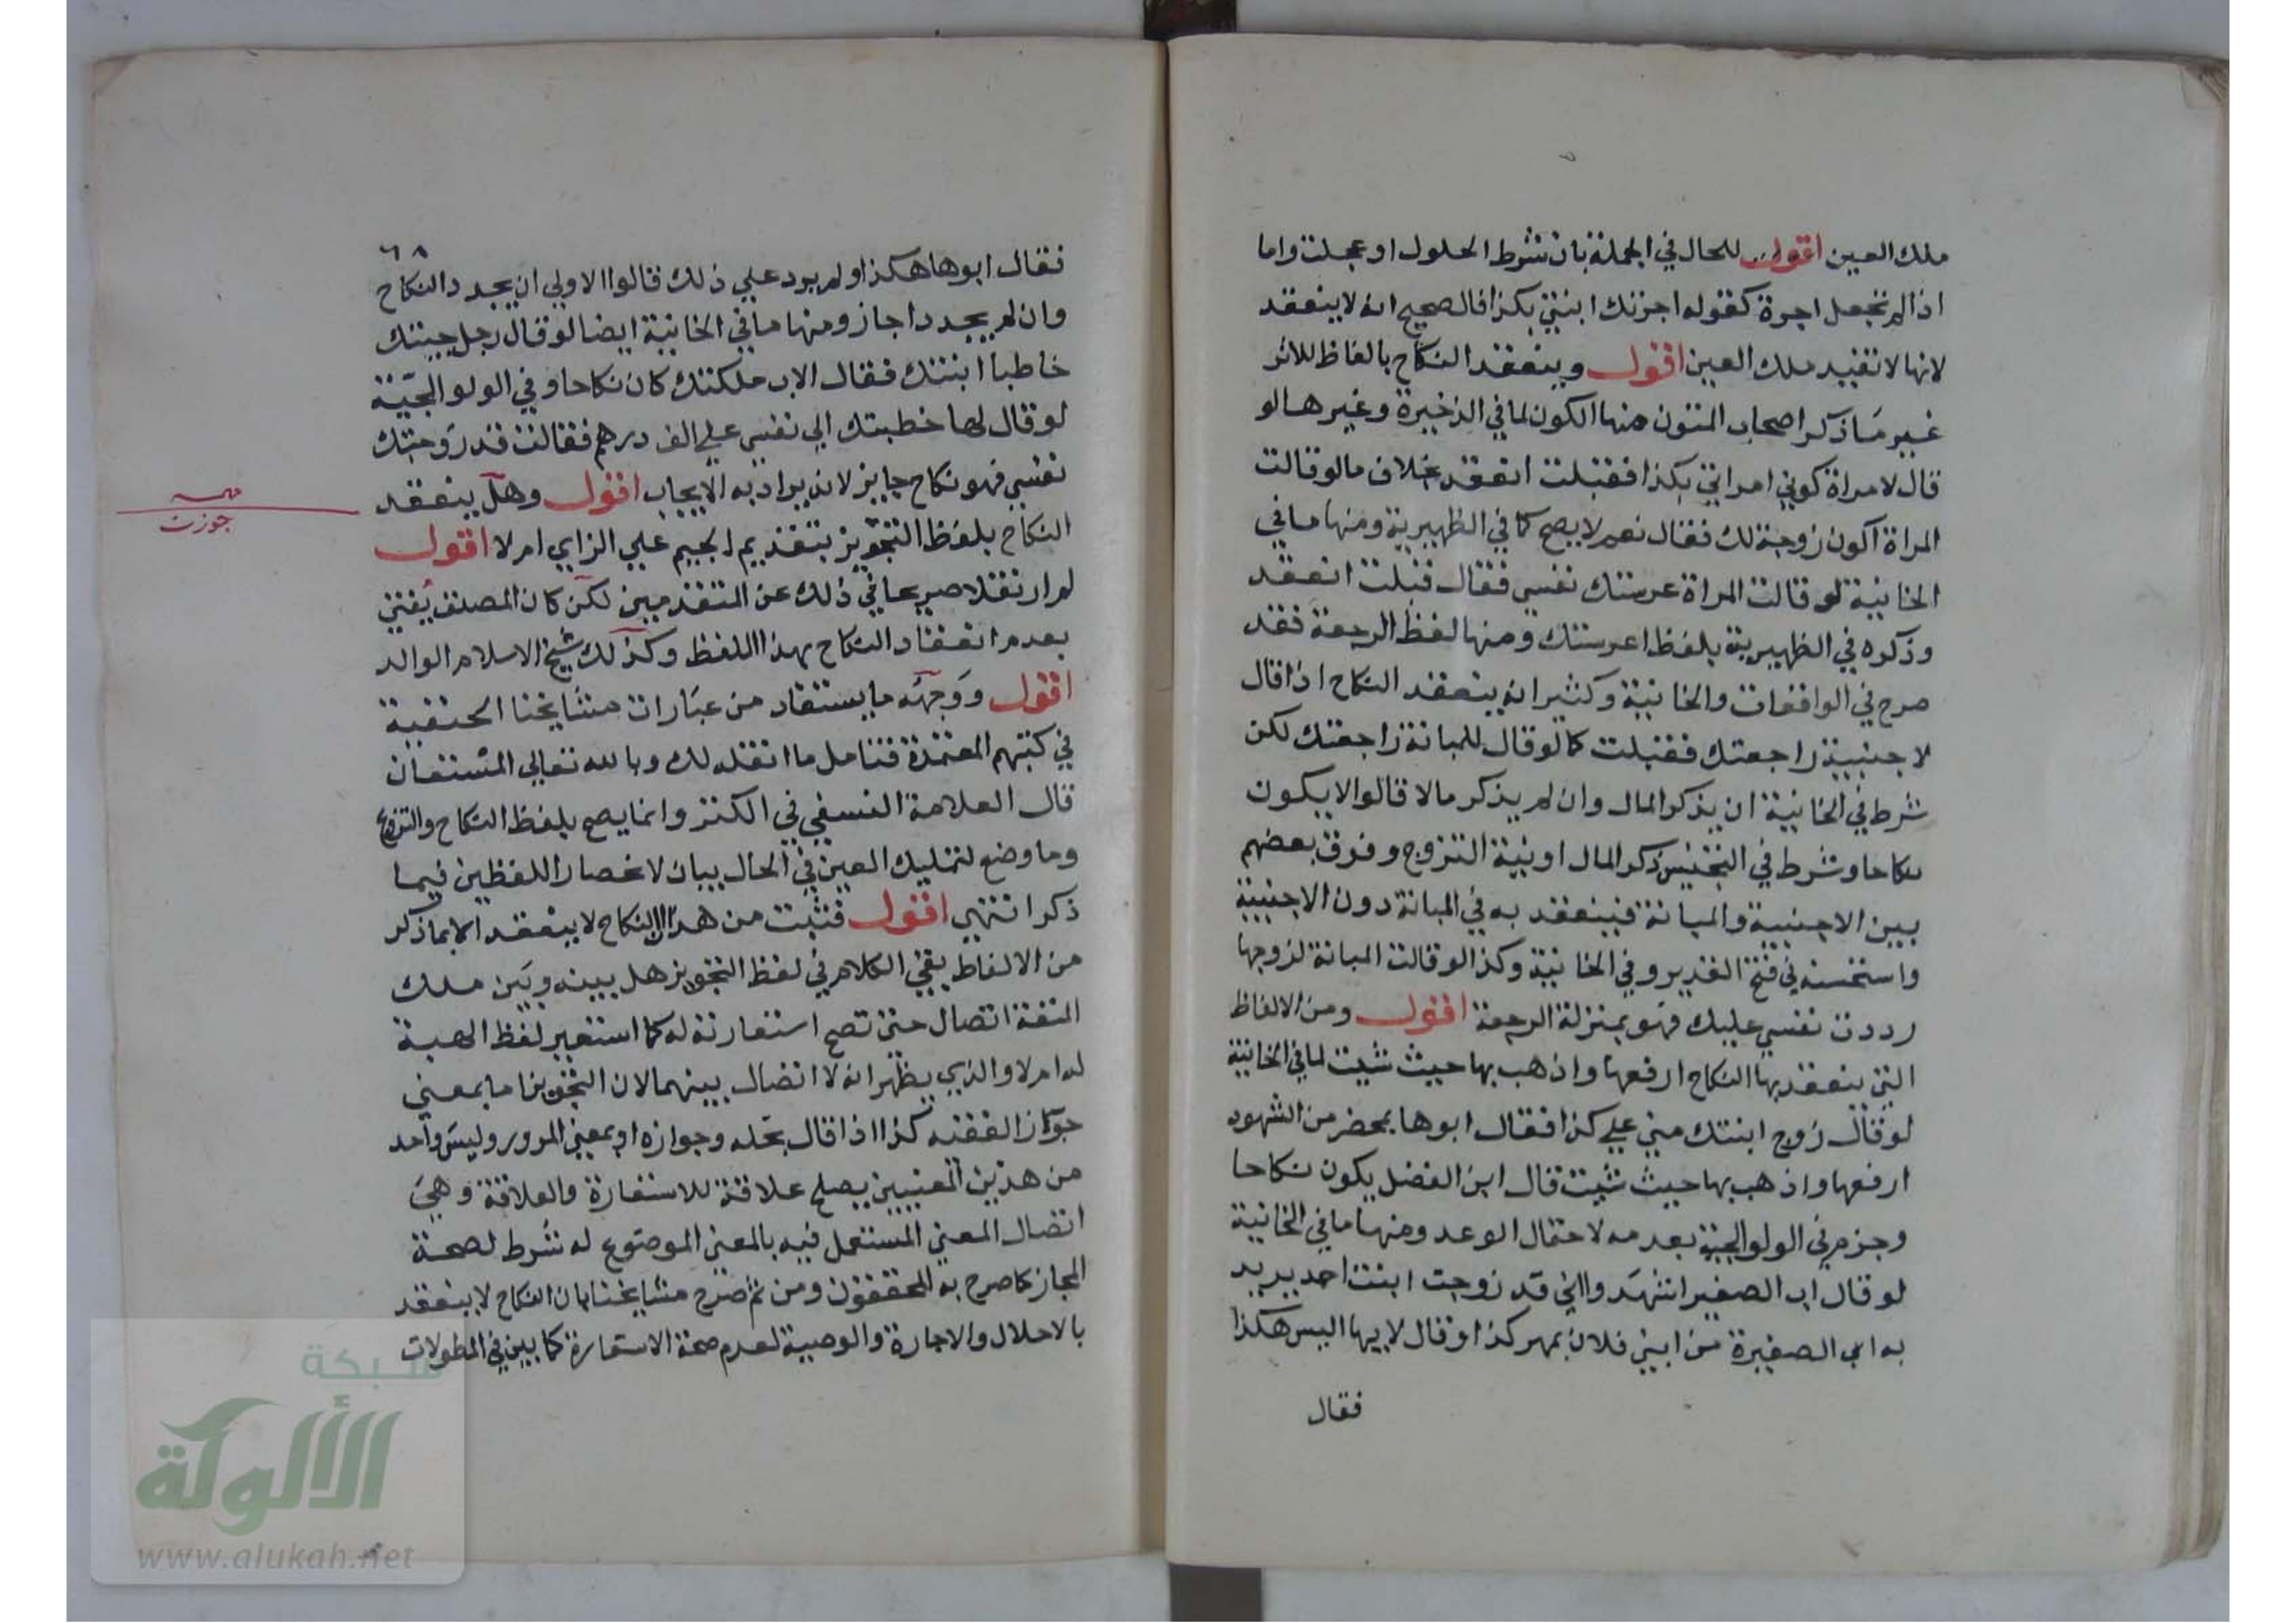 ملك العين اقول للحال في الجملة بان شرط الحلول او عجلت واما
اذا لم تجعل اجرة كقوله اجرتك ابنتي بكذا فالصحيح انه لا ينعقد
لانها لا تفيد ملك العين اقول وينعقد النكاح بالفاظ للاثر
غير ما ذكر اصحاب المتون منها الكون لما في الذخيرة وغيرها لو
قال لامراة كوني امراتي بكذا فقبلت انعقد بخلاف مالو قالت
المراة اكون زوجة لك فقال نعم لا يصح كما في الظهيرية ومنها ما في
الخانية لو قالت المراة عرستك نفسي فقال قبلت انعقد
وذكره في الظهيرية بلفظ اعرستك ومنها لفظ الرجعة فقد
صرح في الواقعات والخانية وكثير انه ينعقد النكاح اذا قال
لاجنبية راجعتك فقبلت كما لو قال للمبانة راجعتك لكن
شرط في الخانية ان يذكر المال وان لم يذكر مالا قالوا لا يكون
نكاحا وشرط في التجنيس ذكر المال او نية التزوج وفرق بعضهم
بين الاجنبية والمبانة فينعقد به في المبانة دون الاجنبية
واستحسنه في فتح القدير وفي الخانية وكذا لو قالت المبانة لزوجها
رددت نفسي عليك فهو بمنزلة الرجعة اقول ومن الالفاظ
التي ينعقد بها النكاح ارفعها واذهب بها حيث شيت لما في الخانية
لو قال زوج ابنتك مني على كذا فقال ابوها بمحضر من الشهود
ارفعها واذهب بها حيث شيت قال ابن الفضل يكون نكاحا
وجزم في الولوالجية بعدمه لاحتمال الوعد ومنها ما في الخانية
لو قال اب الصغير اشهدوا اني قد زوجت ابنت احد يريد
به اب الصغيرة من ابني فلان بمهر كذا وقال لابيها اليس هكذا
فقال
٦٨
فقال ابوها هكذا ولم يرد على ذلك قالوا الاولي ان يجدد النكاح
وان لم يجددا جاز ومنها ما في الخانية ايضا لو قال رجل جيتك
خاطبا ابنتك فقال الاب ملكتك كان نكاحا وفي الولوالجية
لو قال لها خطبتك الي نفسي علي الف درهم فقالت قد زوجتك
نفسي فهو نكاح جايز لانه يراد به الايجاب اقول وهل ينعقد
النكاح بلفظ التجويز بتقديم الجيم علي الزاي ام لا اقول
جوزت
لم ار نقلا صريحا في ذلك عن المتقدمين لكن كان المصنف يفتي
بعدم انعقاد النكاح بهذا اللفظ وكذلك شيخ الاسلام الوالد
اقول ووجهه ما يستفاد من عبارات مشايخنا الحنفية
في كتبهم المعتمدة فتامل ما انقله لك وبالله تعالي المستعان
قال العلامة النسفي في الكنز وانما يصح بلفظ النكاح والتزويج
وما وضع لتمليك العين في الحال بيان لانحصار اللفظين فيما
ذكر انتهي اقول فثبت من هذا ان النكاح لا ينعقد الا بما ذكر
من الالفاظ بقي الكلام في لفظ التجويز هل بينه وبين ملك
المتعة اتصال حتي تصح استعارته له كما استعير لفظ الهبة
له ام لا والذي يظهر انه لا اتصال بينهما لان التجويز اما بمعني
جواز العقد كذا اذا قال بحله وجوازه او بمعني المرور وليس واحد
من هذين المعنيين يصلح علاقة للاستعارة والعلاقة وهي
اتصال المعني المستعمل فيه بالمعني الموضوع له شرط لصحة
المجاز كما صرح به المحققون ومن ثم صرح مشايخنا بان النكاح لا ينعقد
بالاحلال والاجارة والوصية لعدم صحة الاستعارة كما بين في المطولات
شبكة
الألوكة
www.alukah.net